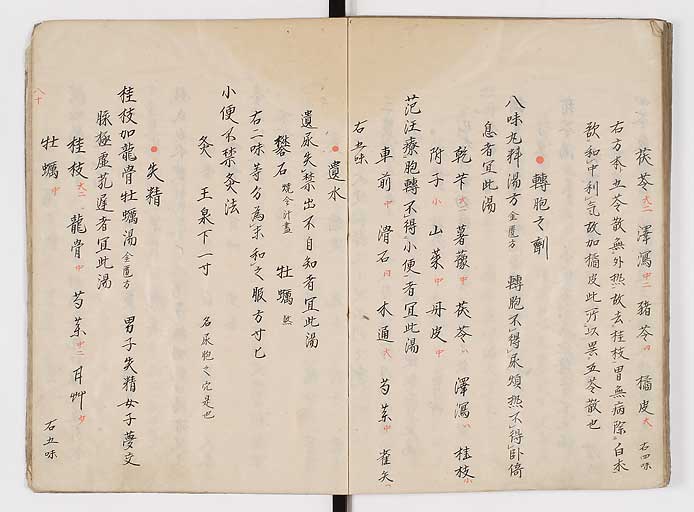 茯苓 大二 澤瀉 中二 豬苓 橘皮 大 右四味
右方本五苓散無外热故去桂枝胃無病除白朮
欲和中利气故加橘皮此所以異五苓散也
轉胞之劑
八味丸料湯方 金匱方 轉胞不得尿煩热不得臥倚
息者宜此湯
乾芐 大二 薯蕷 中 茯苓 澤瀉 桂枝 小
附子 小 山茱 中 丹皮 中
范汪療胞轉不得小便者宜此湯
車前 中 滑石 木通 大 芍藥 中 雀矢
右五味
遺水
遺尿失禁出不自知者宜此湯
礬石 燒令汁盡 牡蠣 熬
右二味等分為末和之服方寸匕
小便不禁灸法
灸 玉泉下一寸 名尿胞之穴是也
失精
桂枝加龍骨牡蠣湯 金匱方 男子失精女子夢交
脉極虛芤遲者宜此湯
桂枝 大二 龍骨 中 芍藥 中二 甘艸 少
牡蠣 中 右五味
八十